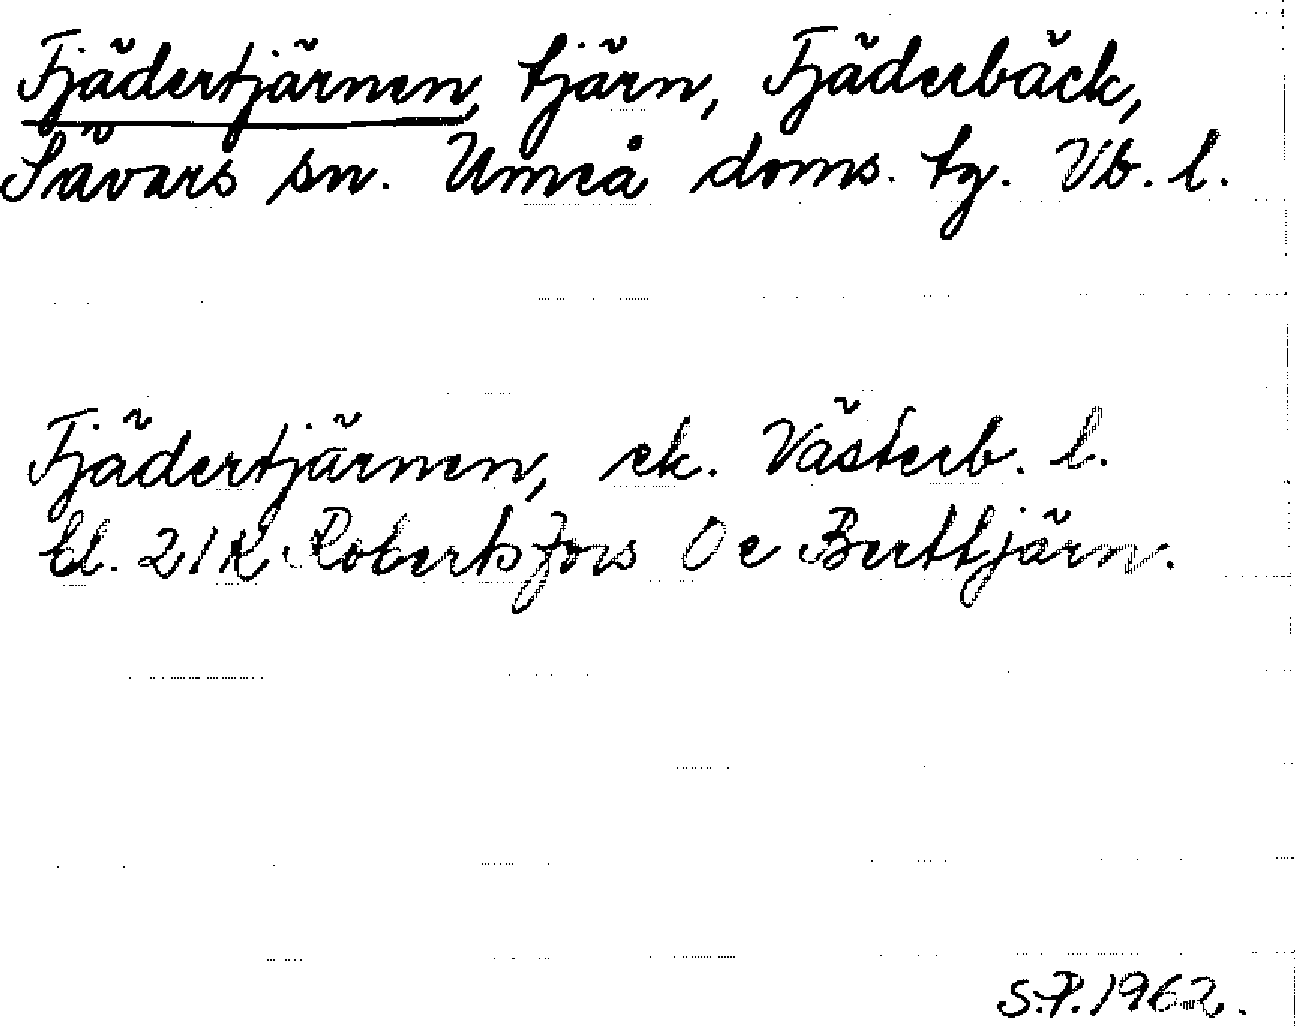 Fjädertjärnen, tjärn, Fjäderbäck,
Sävars sn. Umeå doms. tg. Vb. l.
Fjädertjärnen, ek. Västerb. l.
bl. 21K Robertsfors 0 e Berttjärn.
S.P. 1962.